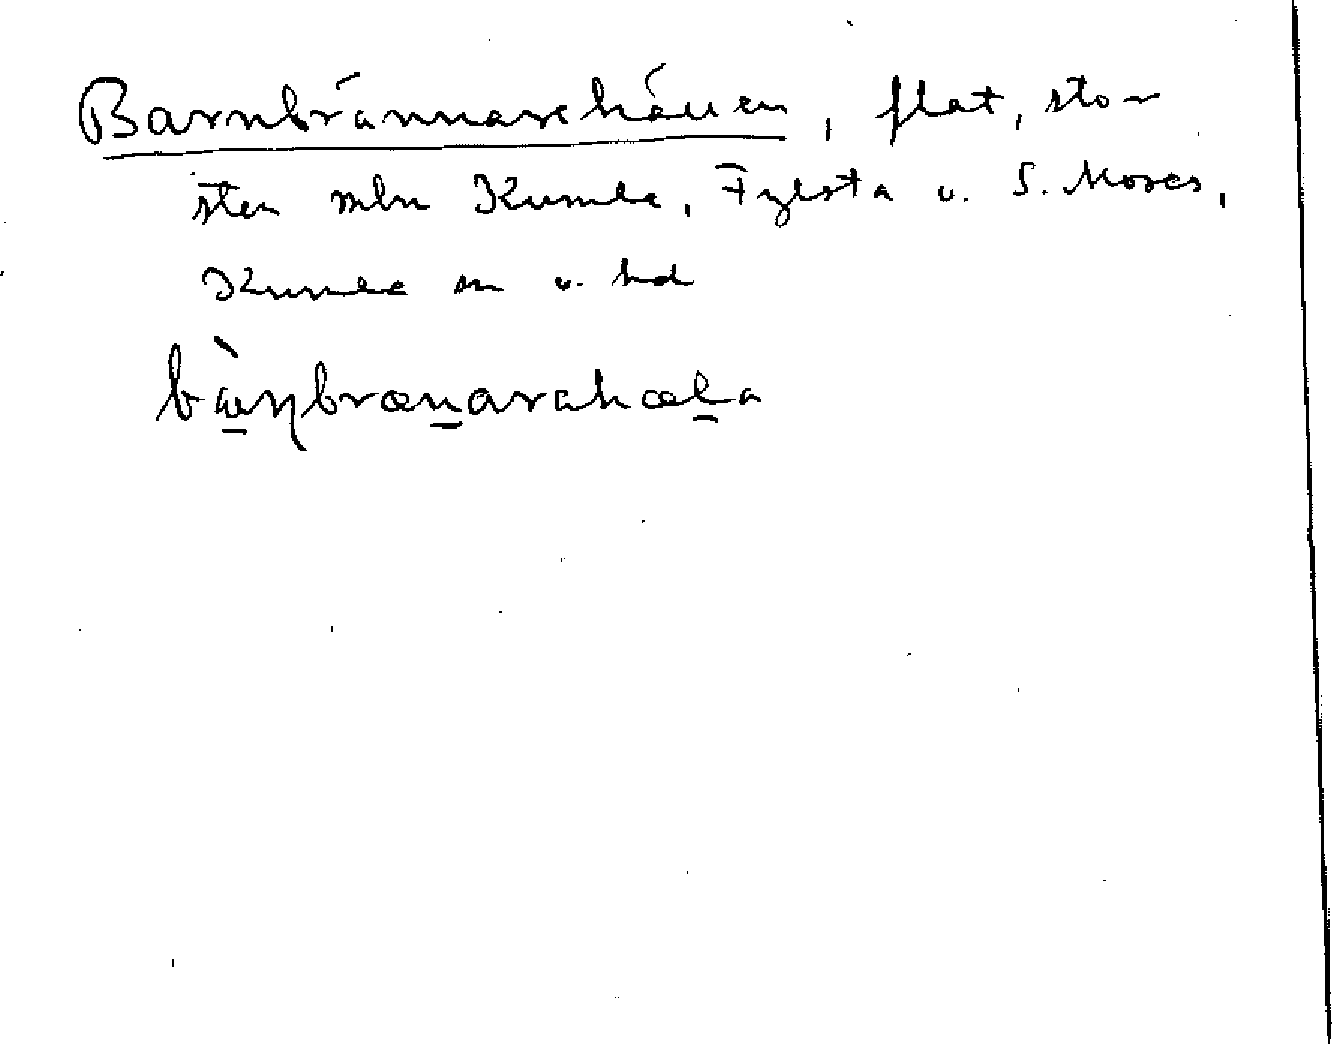 Barnbrännarehällen, flat, stor
sten mln Kumla, Fylsta o. S. Mossen,
Kumla sn o. hd
bàɳbrænarahæla